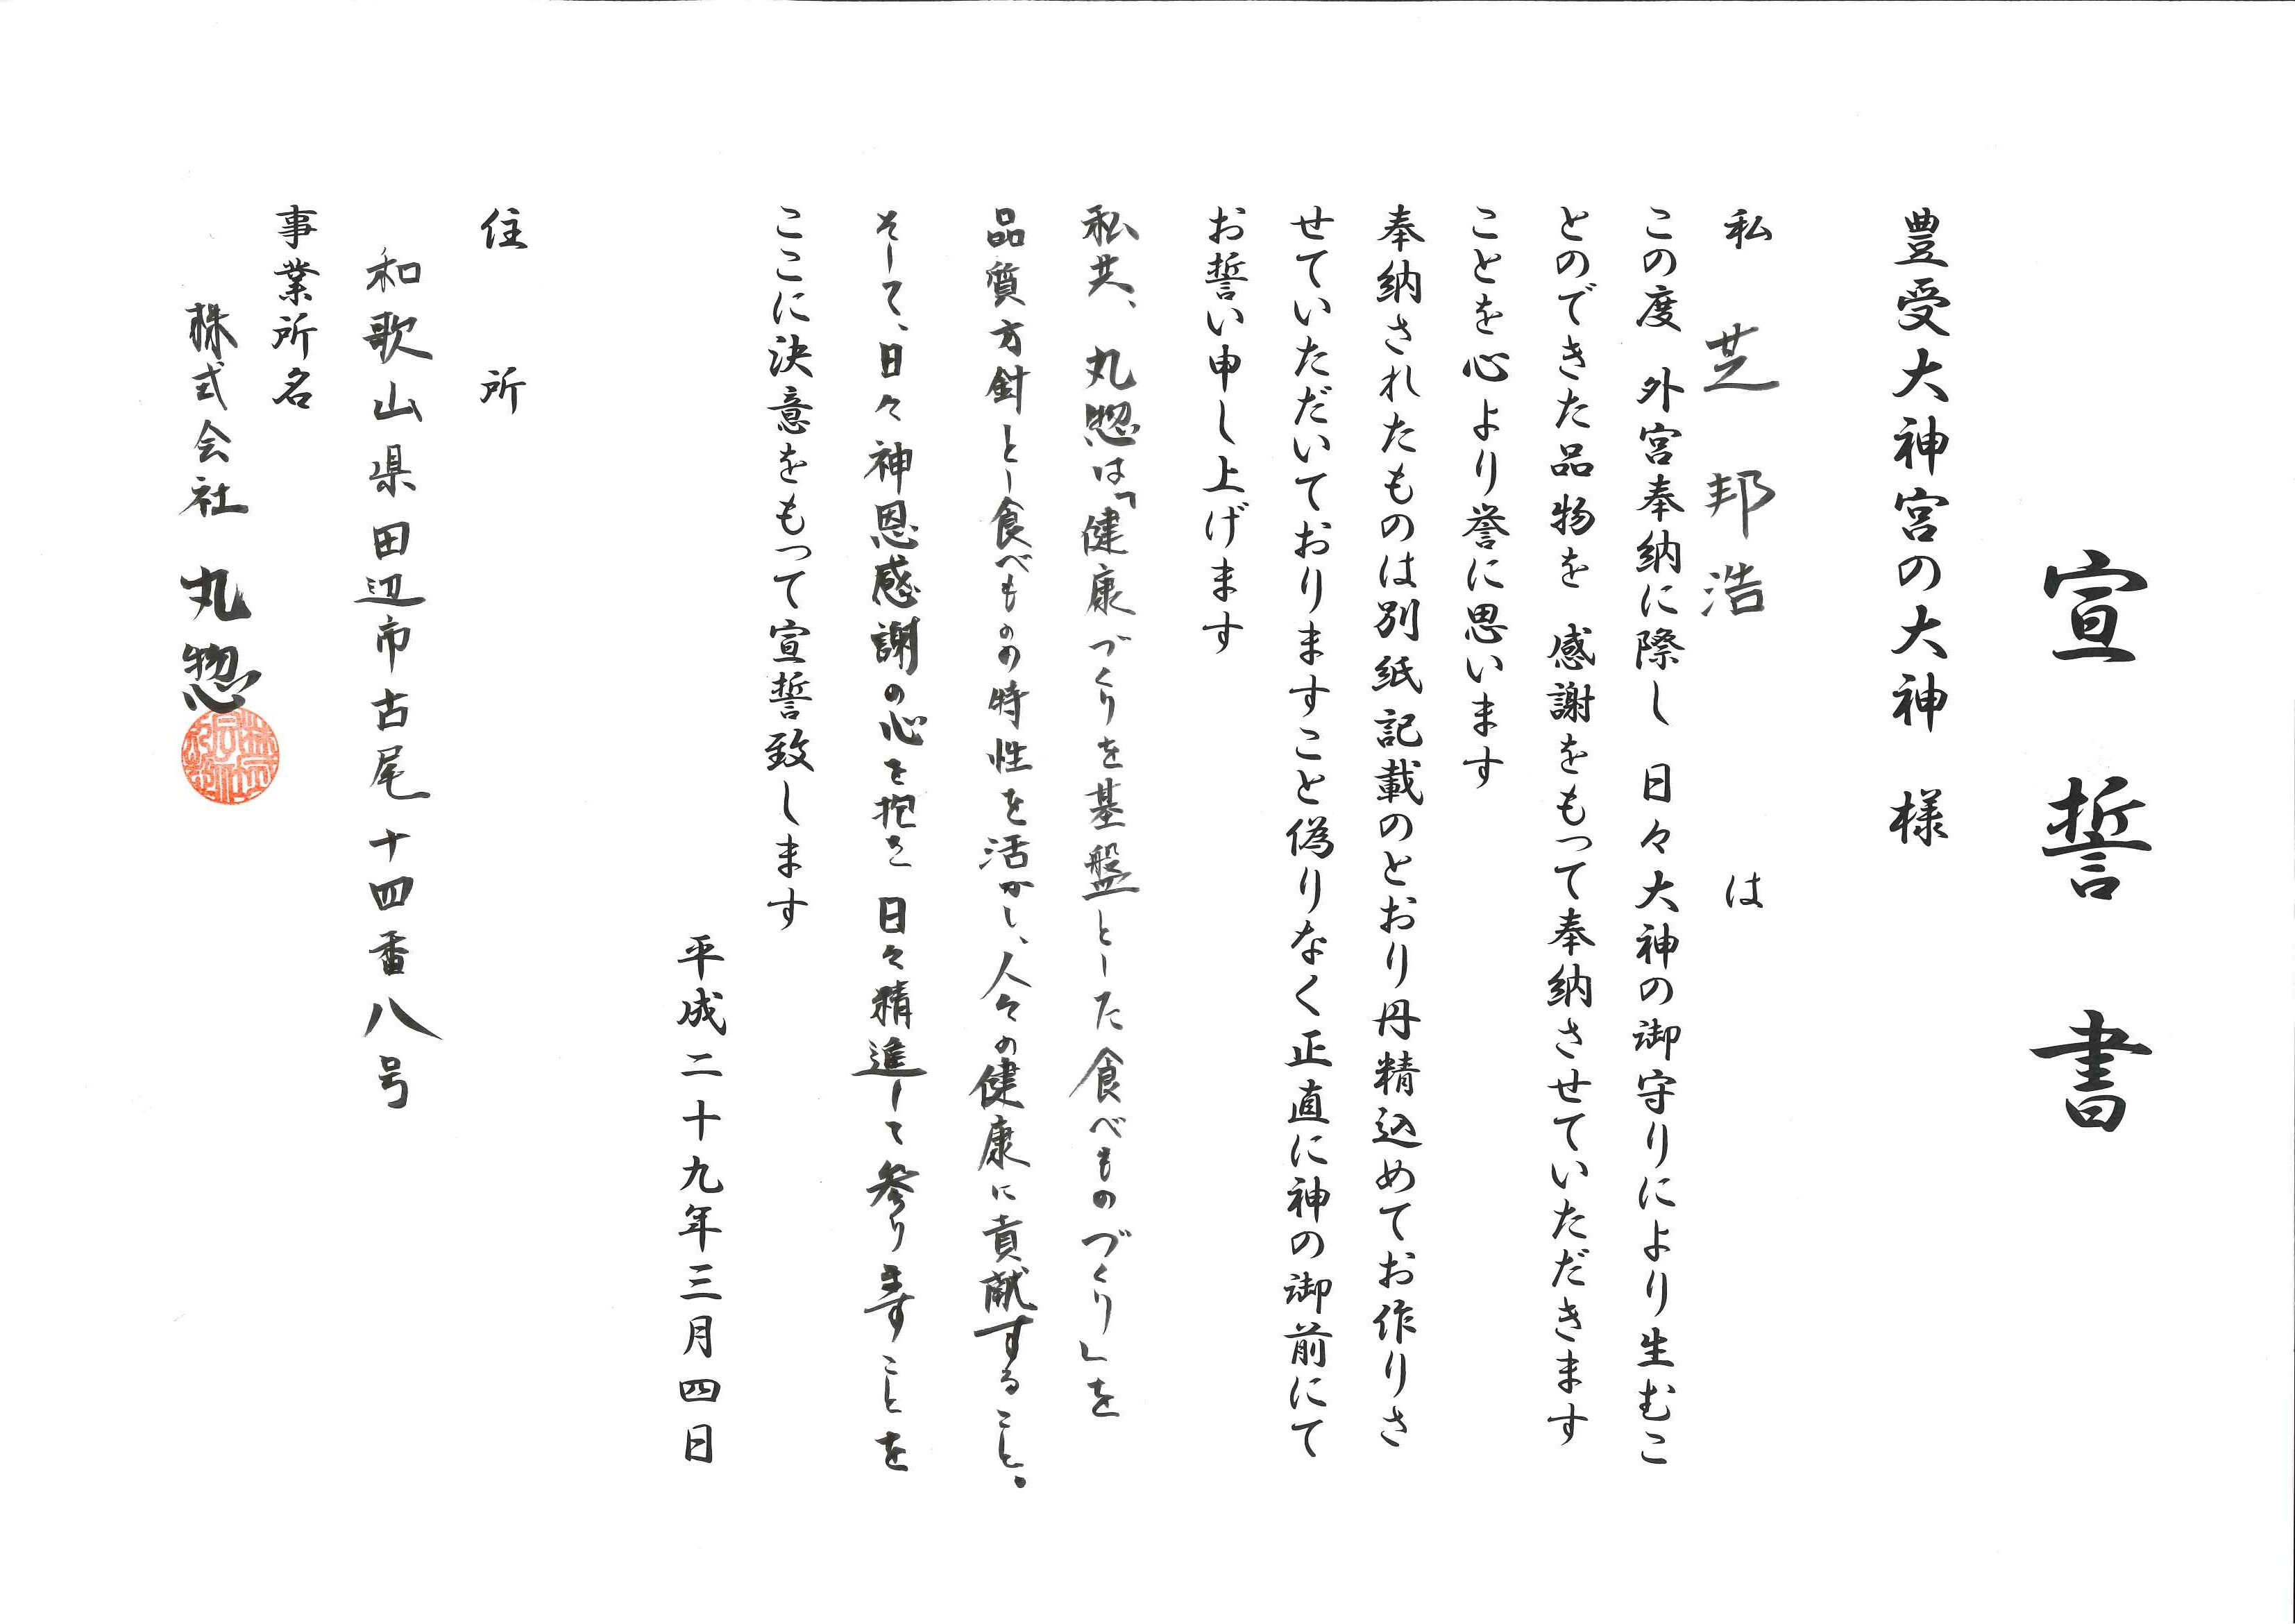 宣誓書
豊受大神宮の大神 様
私 芝 邦浩 は
この度 外宮奉納に際し 日々大神の御守りにより生むこ
とのできた品物を 感謝をもって奉納させていただきます
ことを心より誉に思います
奉納されたものは別紙記載のとおり丹精込めてお作りさ
せていただいておりますこと偽りなく正直に神の御前にて
お誓い申し上げます
私共、丸惣は「健康づくりを基盤とした食べものづくり」を
品質方針とし食べものの特性を活かし、人々の健康に貢献すること。
そして、日々神恩感謝の心を抱き日々精進して参りますことを
ここに決意をもって宣誓致します
平成二十九年三月四日
住所
和歌山県田辺市古尾十四番八号
事業所名
株式会社 丸惣